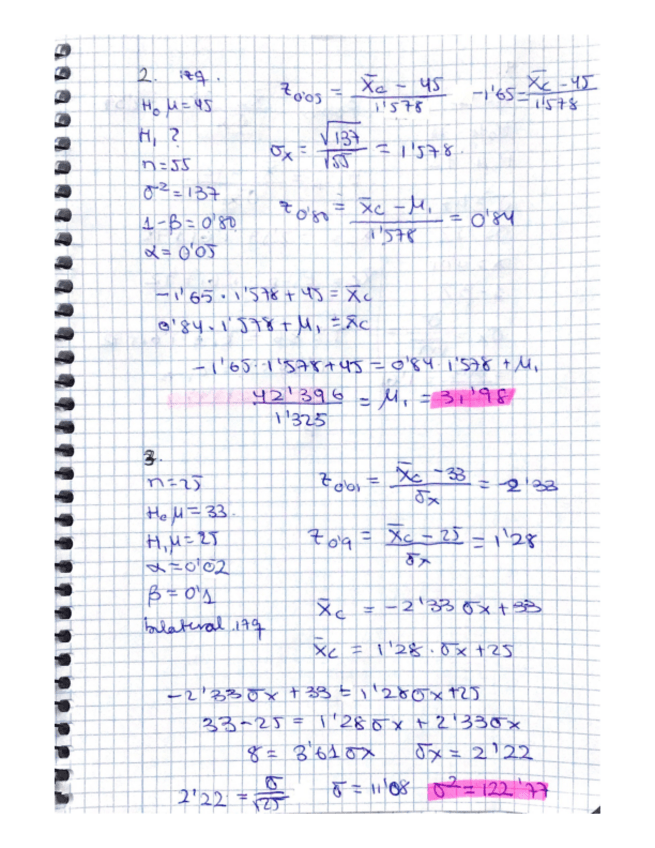 2. izq.
H₀ μ=45
H₁ ?
n=55
σ²=137
1-β=0'80
α=0'05
z₀'₀₅ = (x̄c - 45)/1'578   -1'65 = (x̄c - 45)/1'578
σx = √137/√55 = 1'578.
z₀'₈₀ = (x̄c - μ₁)/1'578 = 0'84
-1'65 · 1'578 + 45 = x̄c
0'84 · 1'578 + μ₁ = x̄c
-1'65 · 1'578 + 45 = 0'84 · 1'578 + μ₁
42'396/1'325 = μ₁ = 31'98
3.
n=25
H₀ μ=33.
H₁ μ=25
α=0'02
β=0'1
bilateral izq
z₀'₀₁ = (x̄c - 33)/σx = -2'33
z₀'₉ = (x̄c - 25)/σx = 1'28
x̄c = -2'33 σx + 33
x̄c = 1'28 · σx + 25
-2'33σx + 33 = 1'28σx + 25
33-25 = 1'28σx + 2'33σx
8 = 3'61σx   σx = 2'22
2'22 = σ/√25   σ = 11'08   σ² = 122'77